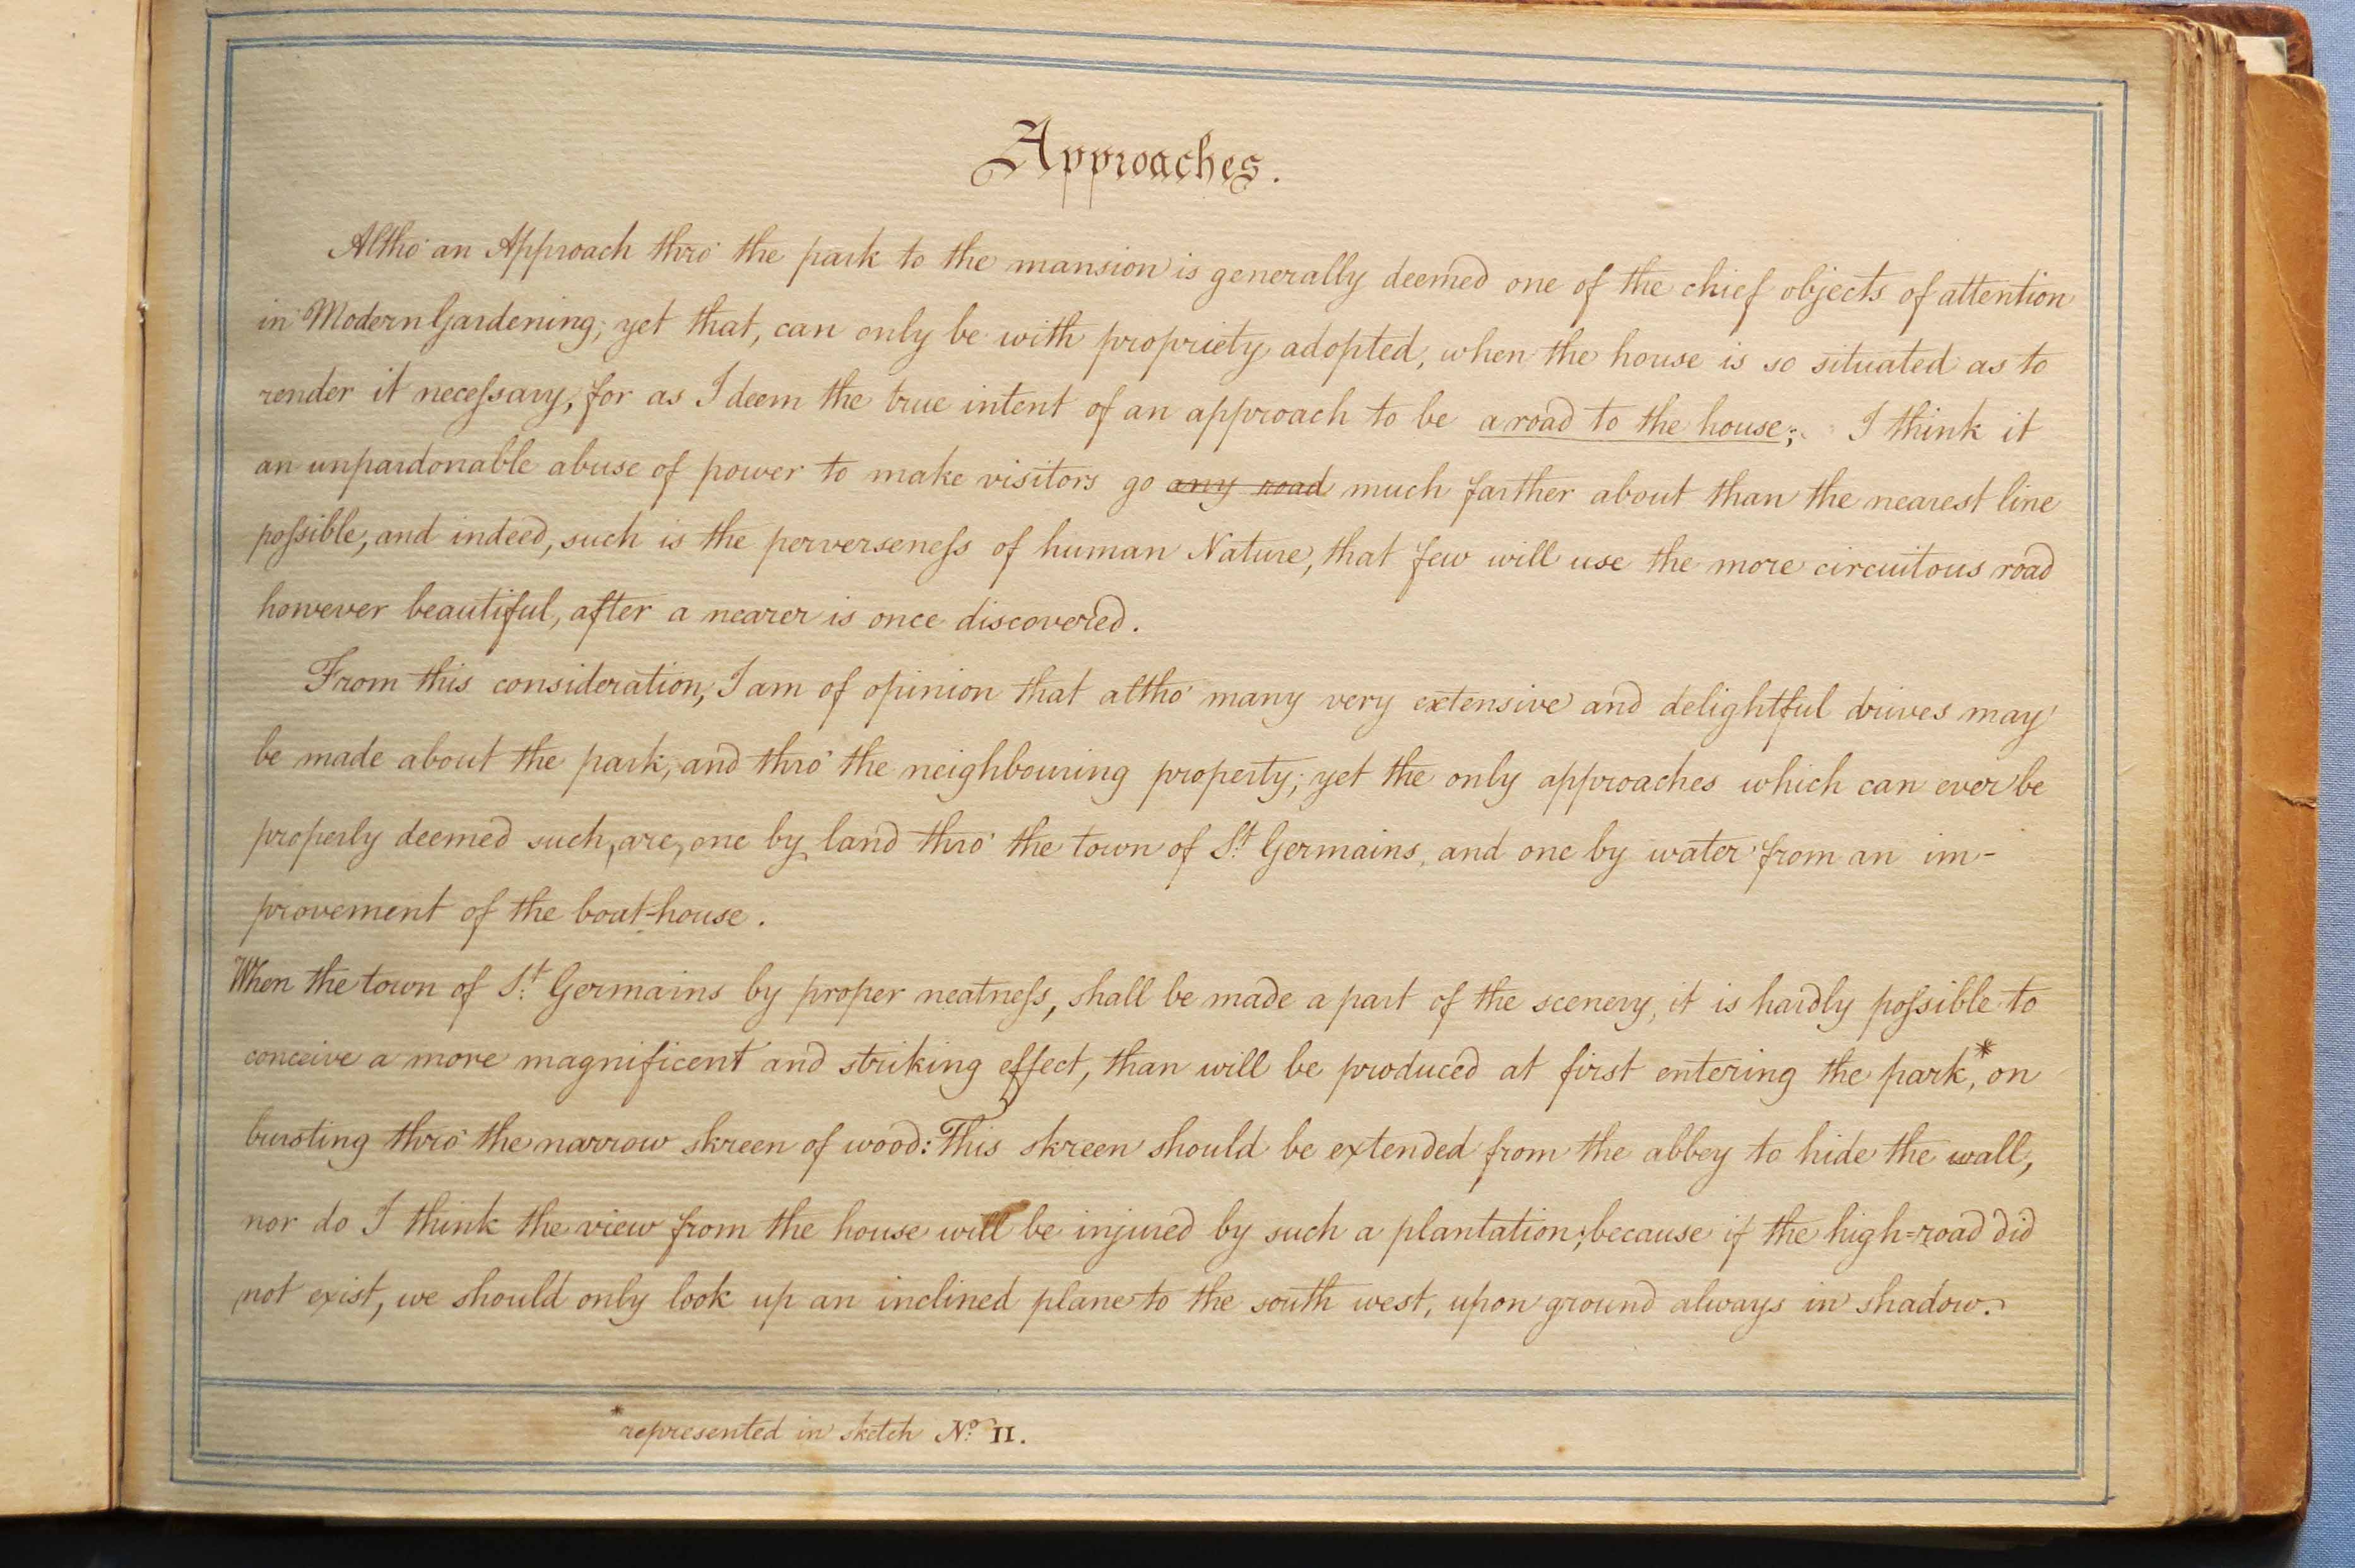 Approaches.
Altho' an Approach thro' the park to the mansion is generally deemed one of the chief objects of attention
in Modern Gardening; yet that, can only be with propriety adopted, when the house is so situated as to
render it neceſsary, for as I deem the true intent of an approach to be a road to the house; I think it
an unpardonable abuse of power to make visitors go any road much farther about than the nearest line
poſsible, and indeed, such is the perverseneſs of human Nature, that few will use the more circuitous road
however beautiful, after a nearer is once discovered.
From this consideration, I am of opinion that altho' many very extensive and delightful drives may
be made about the park, and thro' the neighbouring property; yet the only approaches which can ever be
properly deemed such, are, one by land thro' the town of St. Germains, and one by water from an im-
provement of the boat-house.
When the town of St. Germains by proper neatneſs, shall be made a part of the scenery, it is hardly poſsible to
conceive a more magnificent and striking effect, than will be produced at first entering the park,* on
bursting thro' the narrow skreen of wood: This skreen should be extended from the abbey to hide the wall,
nor do I think the view from the house will be injured by such a plantation; because if the high=road did
not exist, we should only look up an inclined plane to the south west, upon ground always in shadow.
*represented in sketch No. II.